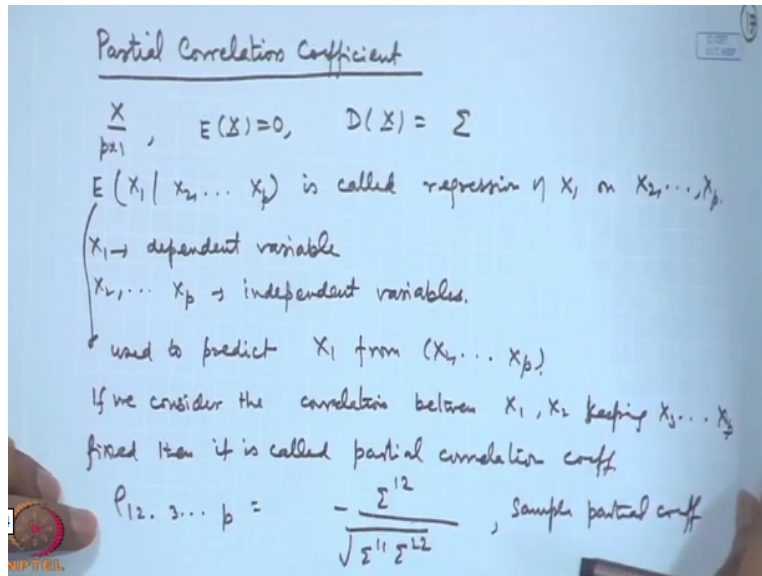 Partial Correlation Coefficient
X
p×1 , E(X)=0, D(X) = Σ
E(X₁ | X₂, ... Xₚ) is called regression of X₁ on X₂, ..., Xₚ.
X₁ → dependent variable
X₂, ... Xₚ → independent variables.
used to predict X₁ from (X₂, ... Xₚ).
If we consider the correlation between X₁, X₂ keeping X₃ ... Xₚ
fixed then it is called partial correlation coeff
ρ₁₂.₃...ₚ = - Σ¹² / √(Σ¹¹ Σ²²) , Sample partial coeff
NPTEL